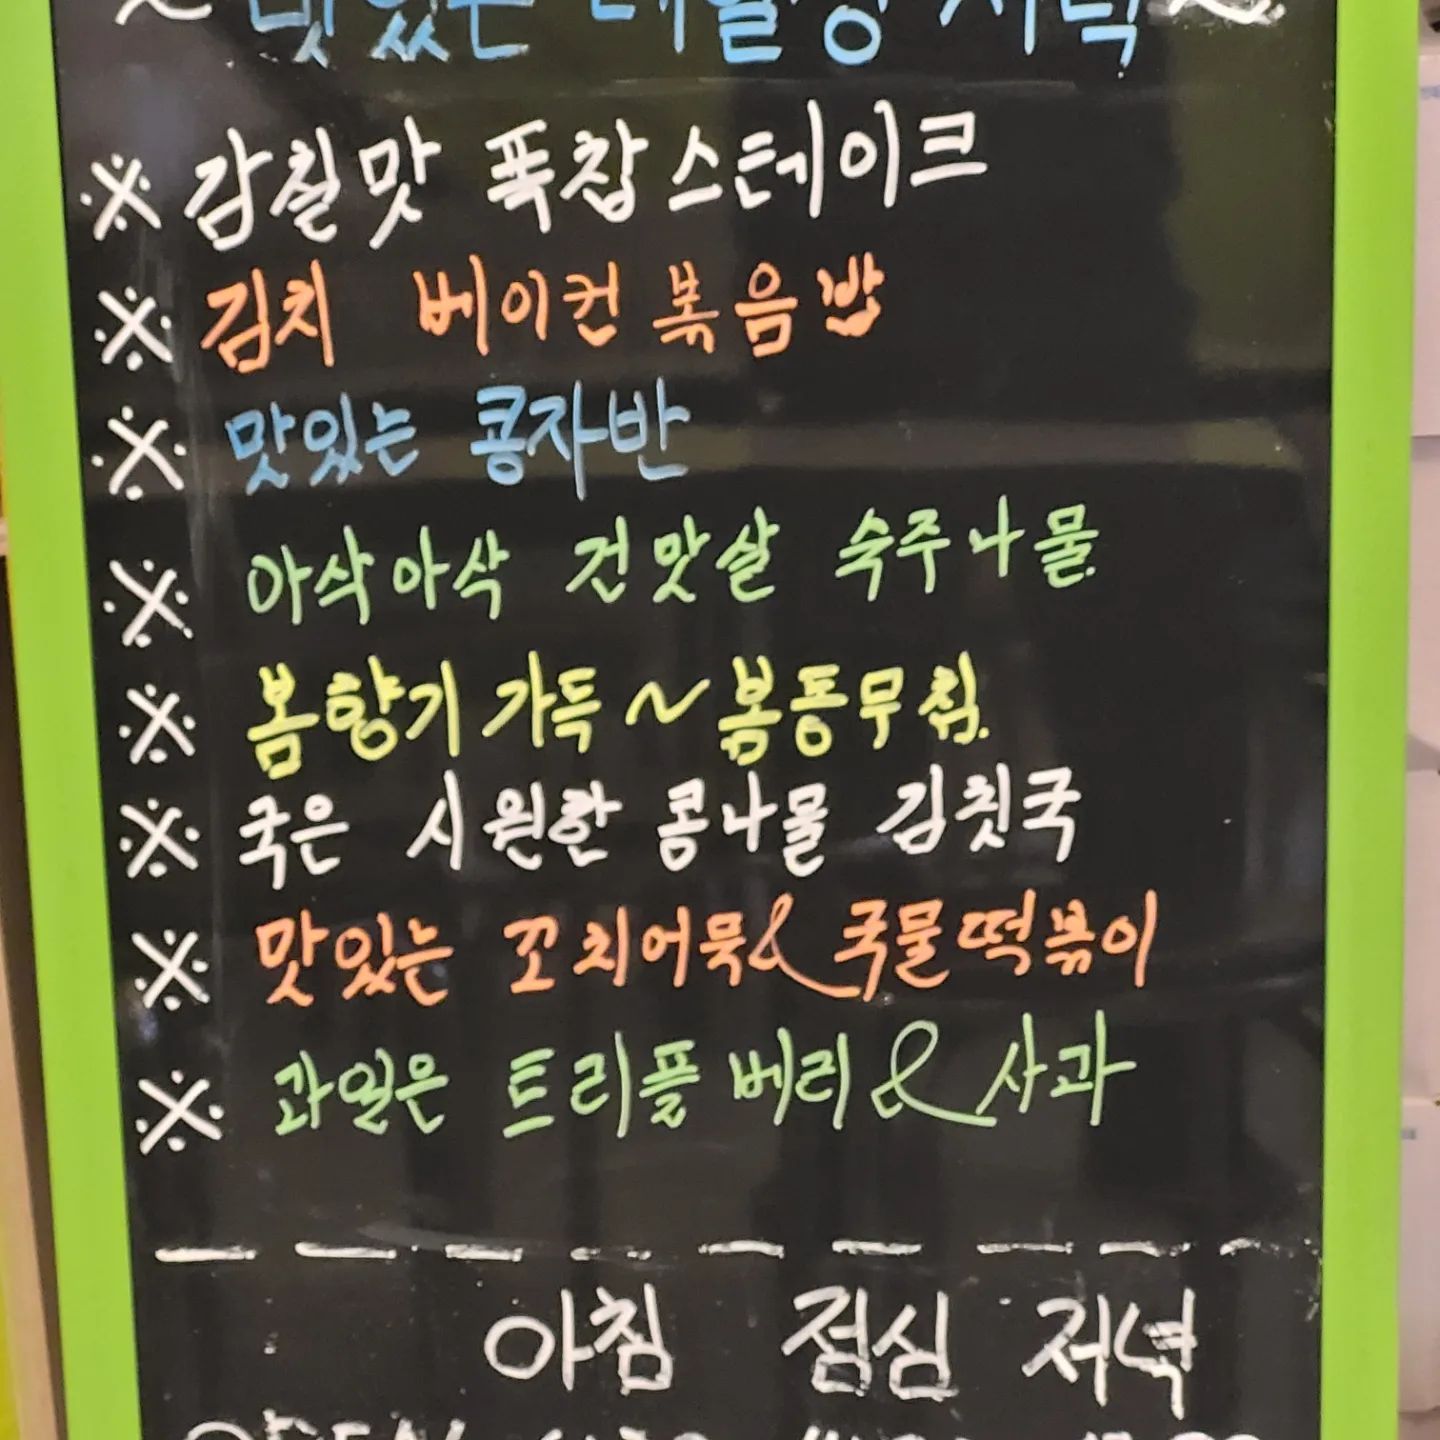 맛있는 저녁~
※ 감칠맛 폭찹스테이크
※ 김치 베이컨볶음밥
※ 맛있는 콩자반
※ 아삭아삭 건맛살 숙주나물.
※ 봄향기가득~봄동무침.
※ 국은 시원한 콩나물 김칫국
※ 맛있는 꼬치어묵&국물떡볶이
※ 과일은 트리플베리&사과
아침 점심 저녁
OPEN